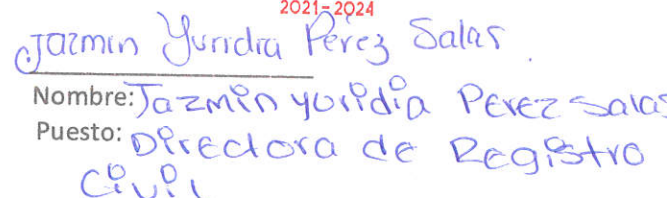 2021-2024
Jazmin Yuridia Pérez Salas
Nombre: Jazmin yuridia Perez Salas
Puesto: Directora de Registro
Civil